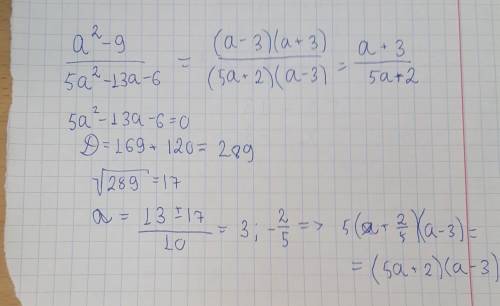 a² - 9 / 5a² - 13a - 6 = (a - 3)(a + 3) / (5a + 2)(a - 3) = a + 3 / 5a + 2
5a² - 13a - 6 = 0
D = 169 + 120 = 289
√289 = 17
a = 13 ± 17 / 10 = 3; -2/5 => 5(a + 2/5)(a - 3) =
= (5a + 2)(a - 3)